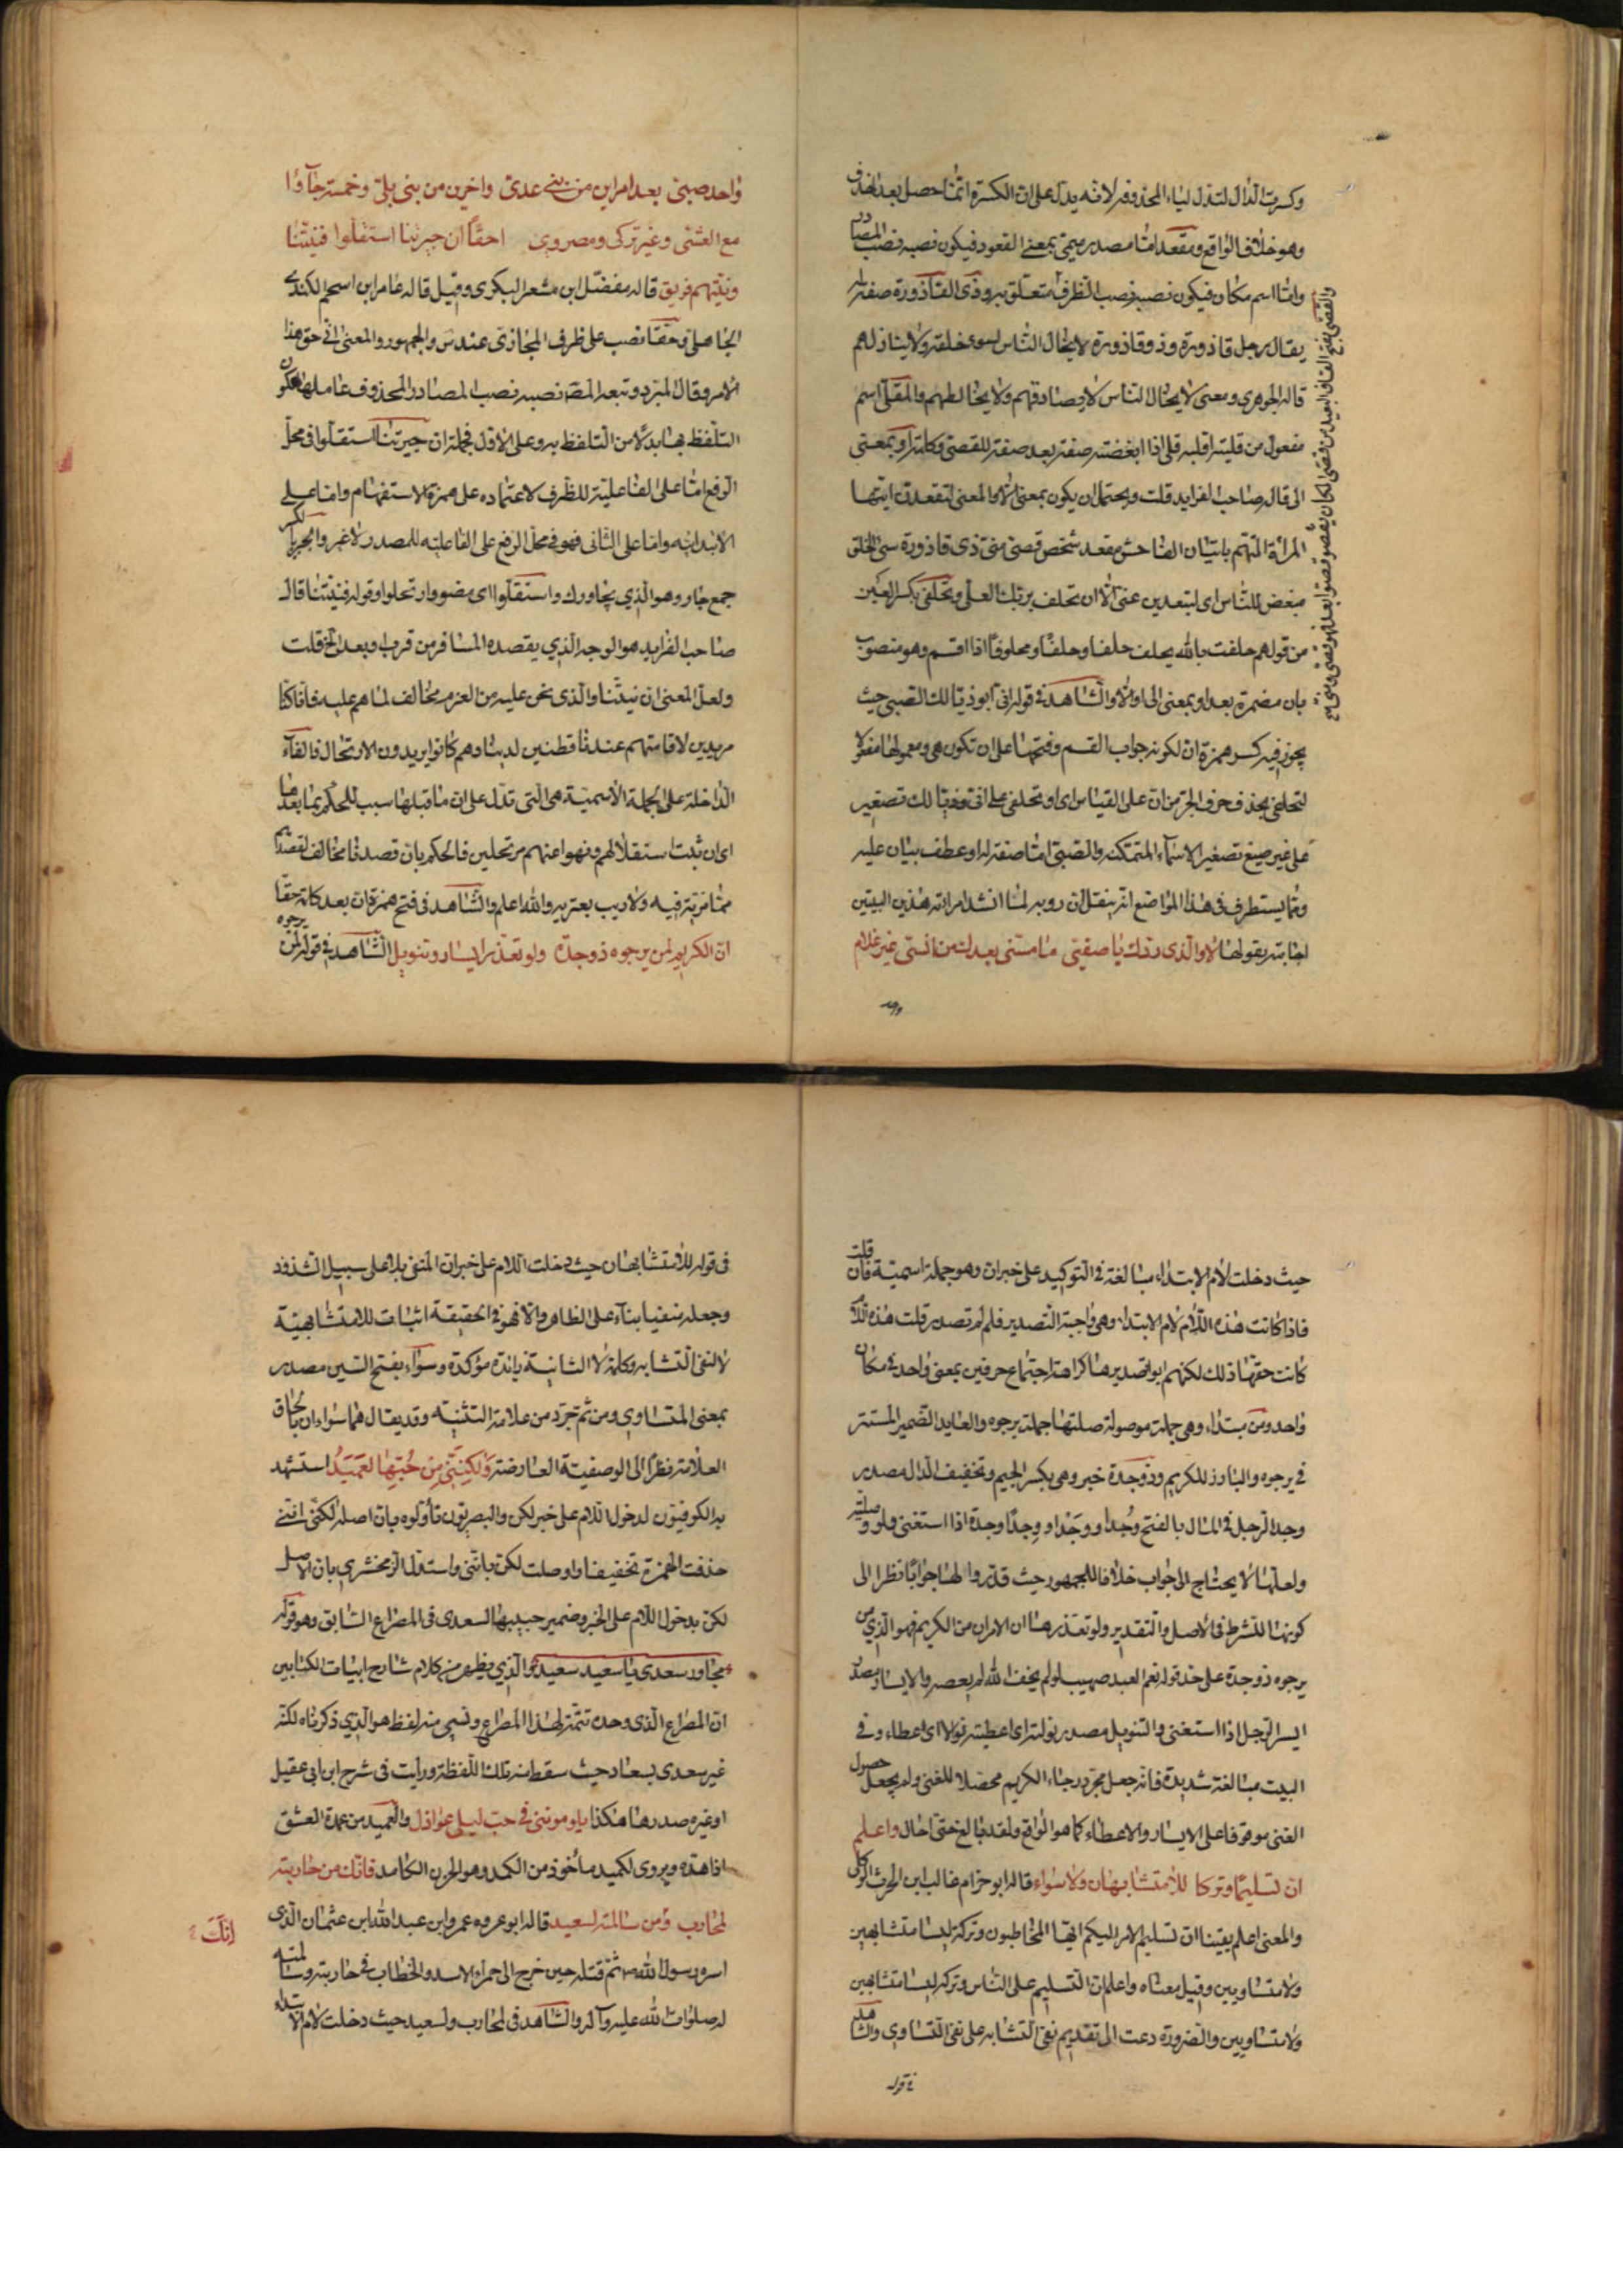 وكسرت الذال لتدل لياء المحذوفة لانه يدل على ان الكسرة انما حصل بعد الحذف
وهو خلاف الواقع ومقعد اما مصدر ميمي بمعنى القعود فيكون نصبه نصب المصادر
واما اسم مكان فيكون نصبه نصب الظرف متعلق به وذى القاذورة صفة له
يقال رجل قاذورة وذو قاذورة لا يخال الناس لسوء خلقه ولا ينازلهم
قاله الجوهرى ومعنى لا يخال الناس لا يصادقهم ولا يخالطهم والمقلى اسم
مفعول من قليته اقليه قلى اذا ابغضته صفة بعد صفة للقصى وكلمة او بمعنى
الى قاله صاحب الفرايد قلت ويحتمل ان يكون بمعنى الا والمعنى لتقعدن ايتها
المرأة المتهم باتيان الفاحش مقعد شخص قصى منى ذى قاذورة سئ الخلق
مبغض للناس اى لتبعدين عنى الا ان تحلف بربك العلى وتحلفى بكسر العين
من قولهم حلفت بالله يحلف حلفا وحلفا ومحلوفا اذا اقسم وهو منصوب
بان مضمرة بعد او بمعنى الى او الا والشاهد فى قوله انى ابو ذيالك الصبى حيث
يجوز فيه كسر همزة ان لكونه جواب القسم وفتحها على ان تكون هى ومعمولها مفعولا
لتحلفى بحذف حرف الجر من ان على القياس اى او تحلفى على انى وذيالك تصغير
على غير صيغ تصغير الاسماء المتمكنه والصبى اما صفة له او عطف بيان عليه
ومما يستطرف فى هذا المواضع انه ينقل ان روبه لما انشد امراته هذين البيتين
اجابته بقولها لا والذى ردك يا صفيى ما مسنى بعدك من انسى غير غلام
واحد
والقصى بفتح القاف البعيد من قصى المكان يقصو قصوا بعد فهو قصى
واحد صبى بعد امراين من بنى عدى واخرين من بنى بلى وخمسة جاؤا
مع العشى وغير تركى ومصروى احقا ان جيرتنا استقلوا فنيتنا
ونيتهم فريق قاله مفضل ابن مشعر البكرى وقيل قاله عامر ابن اسحم الكندى
الجاهلى وحقا نصب على ظرف المجازى عند س والجمهور والمعنى افى حق هذا
الامر وقال المبرد وتبعه المص نصبه نصب المصادر المحذوف عاملها لكون
التلفظ بها بدلا من التلفظ به وعلى الاول فجملة ان جيرتنا استقلوا فى محل
الرفع اما على الفاعلية للظرف لاعتماده على همزة الاستفهام واما على
الابتدائيه واما على الثانى فهو فى محل الرفع على الفاعليه للمصدر لا غير والجيرة بالكسر
جمع جار وهو الذي يجاورك واستقلوا اى مضوا وارتحلوا وقوله فنيتنا قال
صاحب الفرايد هو الوجه الذي يقصده المسافر من قرب او بعد الخ قلت
ولعل المعنى ان نيتنا والذى نحن عليه من العزم مخالف لما هم عليه فانا كنا
مريدين لاقامتهم عندنا قطنين لدينا وهم كانوا يريدون الارتحال فالفاء
الداخلة على الجملة الاسمية هى التى تدل على ان ما قبلها سبب للحكم بما بعدها
اى ان ثبت استقلالهم ونهوا عنهم مرتحلين فالحكم بان قصدنا مخالف لقصدهم
مما مزية فيه ولا ريب يعتريه والله اعلم والشاهد فى فتح همزة ان بعد كلمة حقا
ان الكريم لمن يرجوه ذو جدة ولو تعذر ايسار وتنويل الشاهد فى قوله لمن يرجوه
حيث دخلت لام الابتداء مبالغة فى التوكيد على خبر ان وهو جملة اسمية فان قلت
فاذا كانت هذه اللام لام الابتداء وهى واجبة التصدير فلم لم تصدر قلت هذه اللام
كانت حقها ذلك لكنهم ابوا تصديرها كراهة اجتماع حرفين بمعنى واحد فى مكان
واحد ومن مبتداء وهى جملة موصولة صلتها جملة يرجوه والعايد الضمير المستتر
فى يرجوه والبارز للكريم وذو جدة خبر وهى بكسر الجيم وتخفيف الدال مصدر
وجد الرجل فى المال بالفتح وجدا ووجدا ووجدا وجدة اذا استغنى ولو وصلية
ولعلها لا يحتاج الى جواب خلافا للجمهور حيث قدروا لها جوابا نظرا الى
كونها للشرط فى الاصل والتقدير ولو تعذرها ان الامران من الكريم فهو الذي من
يرجوه ذو جدة على حد قوله نعم العبد صهيب لو لم يخف الله لم يعصه والايسار مصدر
ايسر الرجل اذا استغنى والتنويل مصدر نولته اى اعطيته نولا اى اعطاء وفى
البيت مبالغة شديدة فانه جعل مجرد رجاء الكريم محصلا للغنى ولم يجعل حصول
الغنى موقوفا على الايسار والاعطاء كما هو الواقع ولقد بالغ حتى احال واعلم
ان تسليما وتركا للامتشابهان ولا سواء قاله ابو حزام غالب ابن الحرث العكلى
والمعنى اعلم يقينا ان تسليم الامر اليكم ايها المخاطبون وتركه ليسا متشابهين
ولا متساويين وقيل معناه واعلم ان التسليم على الناس وتركه ليسا متشابهين
ولا متساويين والضرورة دعت الى تقديم نفى التشابه على نفى التساوى والشاهد
فى قوله
فى قوله للامتشابهان حيث دخلت اللام على خبر ان المنفى بلا على سبيل الشذوذ
وجعله منفيا بناء على الظاهر والا فهو فى الحقيقة اثبات للامتشابهية
لا لنفى التشابه وكلمة لا الثانية زائدة مؤكدة وسواء بفتح السين مصدر
بمعنى المتساوى ومن ثم تجرد من علامة التثنيه وقد يقال هما سواءان بالحاق
العلامة نظرا الى الوصفية العارضة ولكننى من حبها لعميد استشهد
به الكوفيون لدخول اللام على خبر لكن والبصريون تأولوه بان اصله لكن اننى
حذفت الهمزة تخفيفا واوصلت لكن بانى واستدل الزمخشرى بان الاصل
لكن بدخول اللام على الخبر وضمير حبيبها لسعدى فى المصراع السابق وهو قوله
مجاور سعدى يا سعيد سعيد والذي يظهر من كلام شارح ابيات الكتابين
ان المصراع الذى وحده تتمة لهذا المصراع ونسى منه لفظ هو الذي ذكرناه لكنه
غير سعدى بسعاد حيث سقط منه تلك اللفظة ورأيت فى شرح ابن ابى عقيل
او غيره صدرها هكذا يلوموننى فى حب ليلى عواذل والعميد من عمدة العشق
اذا هده ويروى لكميد مأخوذ من الكمد وهو الحزن الكامد فانك من حاربته
لمحارب ومن سالمته لسعيد قاله ابو عزه عمرو ابن عبد الله ابن عثمان الذى
اسره رسول الله ثم قتله حين خرج الى حمراء الاسد والخطاب فى حاربته وسالمته
له صلوات الله عليه وآله والشاهد فى لمحارب ولسعيد حيث دخلت لام الابتداء
انك